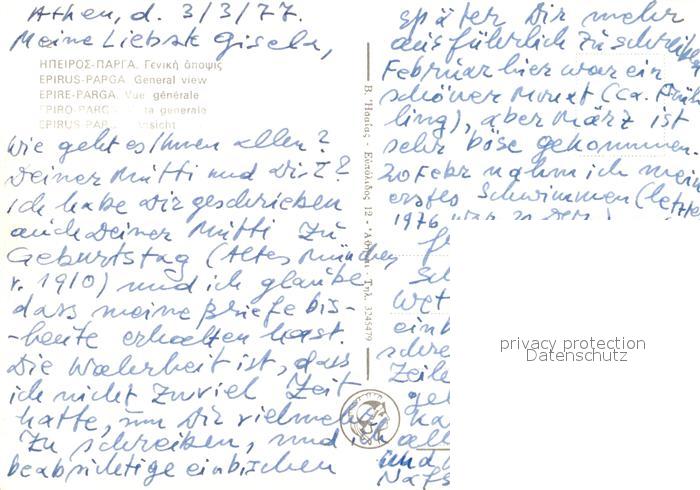 Athen, d. 3/3/77.
Meine Liebste Gisela,
ΗΠΕΙΡΟΣ-ΠΑΡΓΑ. Γενική άποψις
EPIRUS-PARGA. General view
EPIRE-PARGA. Vue générale
EPIRO-PARGA. generale
EPIRUS-PAR Ansicht
Wie geht es Ihnen allen?
Deiner Mutti und Dir?
Ich habe Dir geschrieben
auch Deiner Mutti zu
Geburtstag (Altes München
v. 1910) und ich glaube
dass meine Briefe bis-
-heute erhalten hast.
Die Wahrheit ist, dass
ich nicht zuviel Zeit
hatte, um Dir vielmehr
zu schreiben, und ich
beabsichtige einbischen
Β. Ἠσαΐας - Εὐπόλιδος 12 - Ἀθῆναι - Τηλ. 3245479
später Dir mehr
ausführlich zu schreiben
Februar hier war ein
schöner Monat (ca. Früh-
ling), aber März ist
sehr böse gekommen.
20 Febr nahm ich mein
erstes Schwimmen (letzte
1976 war
Wet
einb
schre
Zeile
gel
ka
all
und
privacy protection
Datenschutz